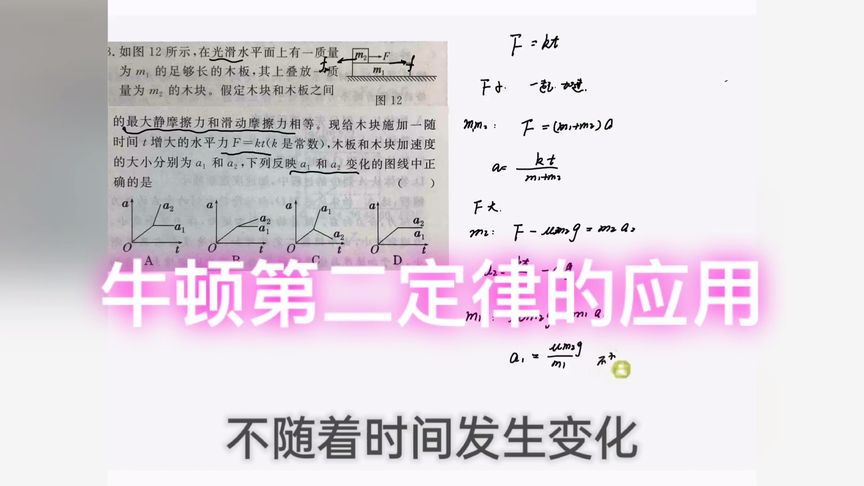 3. 如图 12 所示,在光滑水平面上有一质量
为 m₁ 的足够长的木板,其上叠放一质
量为 m₂ 的木块。假定木块和木板之间
m₂ F
m₁
图 12
的最大静摩擦力和滑动摩擦力相等。现给木块施加一随
时间 t 增大的水平力 F=kt(k 是常数),木板和木块加速度
的大小分别为 a₁ 和 a₂,下列反映 a₁ 和 a₂ 变化的图线中正
确的是 ( )
a a₂ a₁ O t A
a a₂ a₁ O t B
a a₁ a₂ O t C
a a₂ a₁ O t D
F = kt
F小. 一起 加速.
m₁m₂: F = (m₁+m₂) a
a = kt/(m₁+m₂)
F大.
m₂: F - μm₂g = m₂a₂
m₁:
a₁ = μm₂g/m₁ 不
牛顿第二定律的应用
不随着时间发生变化